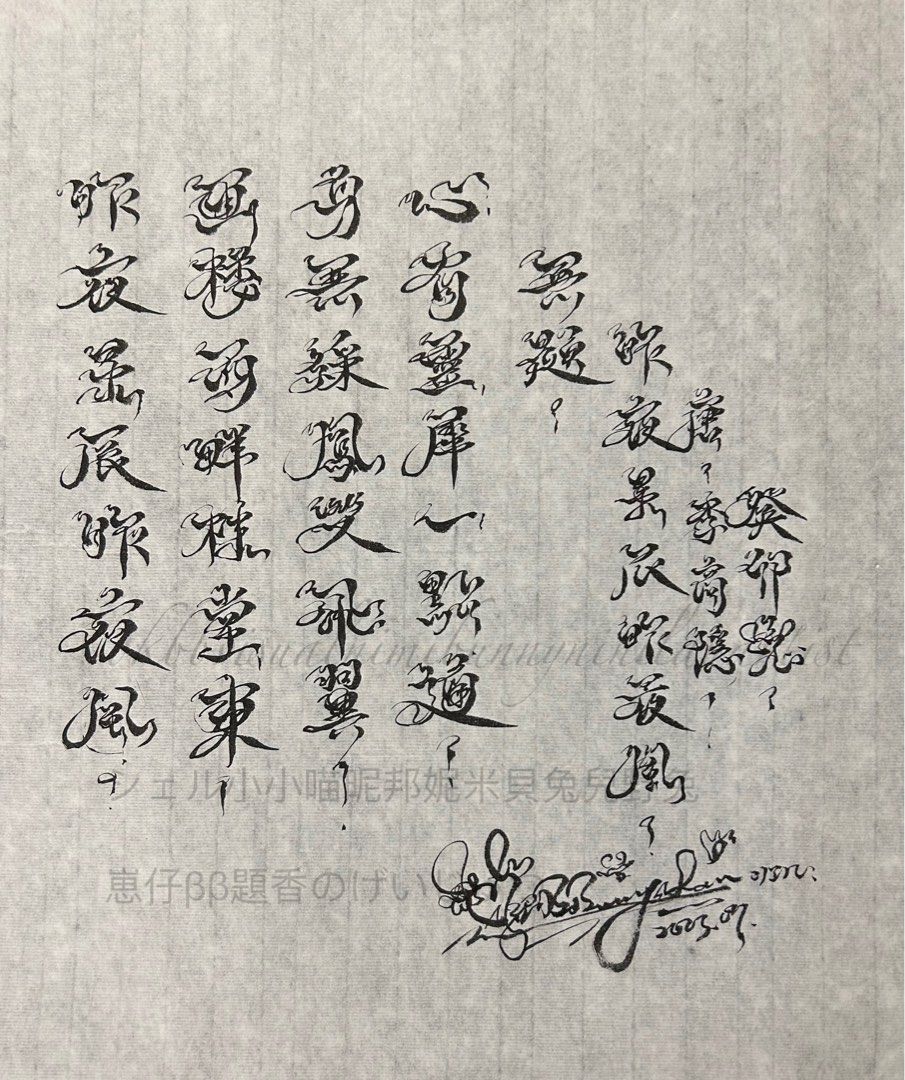 昨夜星辰昨夜風
畫樓西畔桂堂東
身無綵鳳雙飛翼
心有靈犀一點通
無題
昨夜星辰昨夜風
唐、李商隱
癸卯
2023.07.
シェル小小喵昵邦妮米貝兔兒
崽仔ββ題香のけい